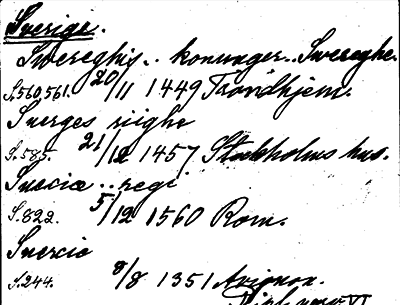 Sverige.
Swereghis.. konunger.. Swereghe.
S.560,561. 20/11 1449 Trondhjem.
Sverges riighe
S.585. 21/12 1457 Stockholms hus.
Sueciæ .. regi
S.822. 5/12 1560 Rom.
Suecie
S.244. 8/8 1351 Avignon.
Dipl. norv. VI